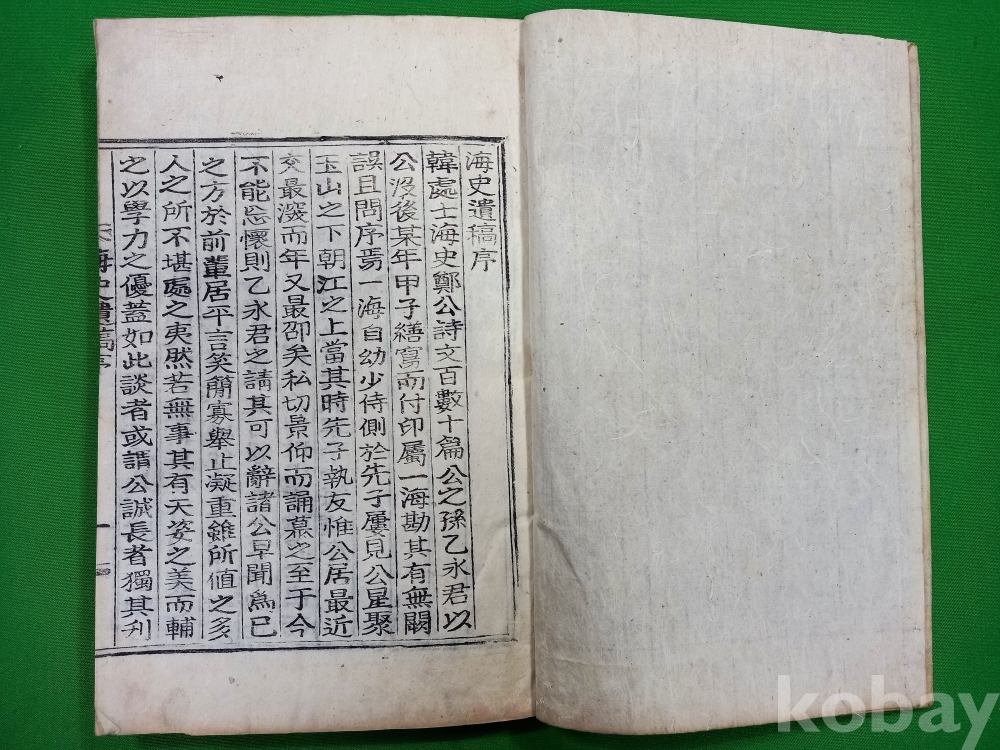 海史遺稿序
韓處士海史鄭公詩文百數十篇公之孫乙永君以
公沒後某年甲子繕寫而付印屬一海勘其有無闕
誤且問序焉一海自幼少侍側於先子屢見公星聚
玉山之下朝江之上當其時先子執友惟公居最近
交最深而年又最卲矣私切景仰而誦慕之至于今
不能忘懷則乙永君之請其可以辭諸公早聞爲己
之方於前輩居平言笑簡寡舉止凝重雖所値之多
人之所不堪處之夷然若無事其有天姿之美而輔
之以學力之優蓋如此談者或謂公誠長者獨其利
海史遺稿序
一
kobay